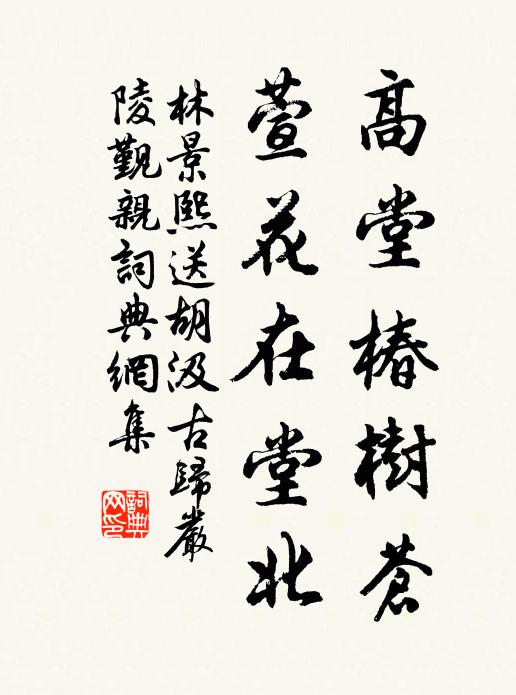 高堂椿樹蒼
萱花在堂北
林景熙送胡汲古歸嚴
陵覲親詞典網集
詞典
网印